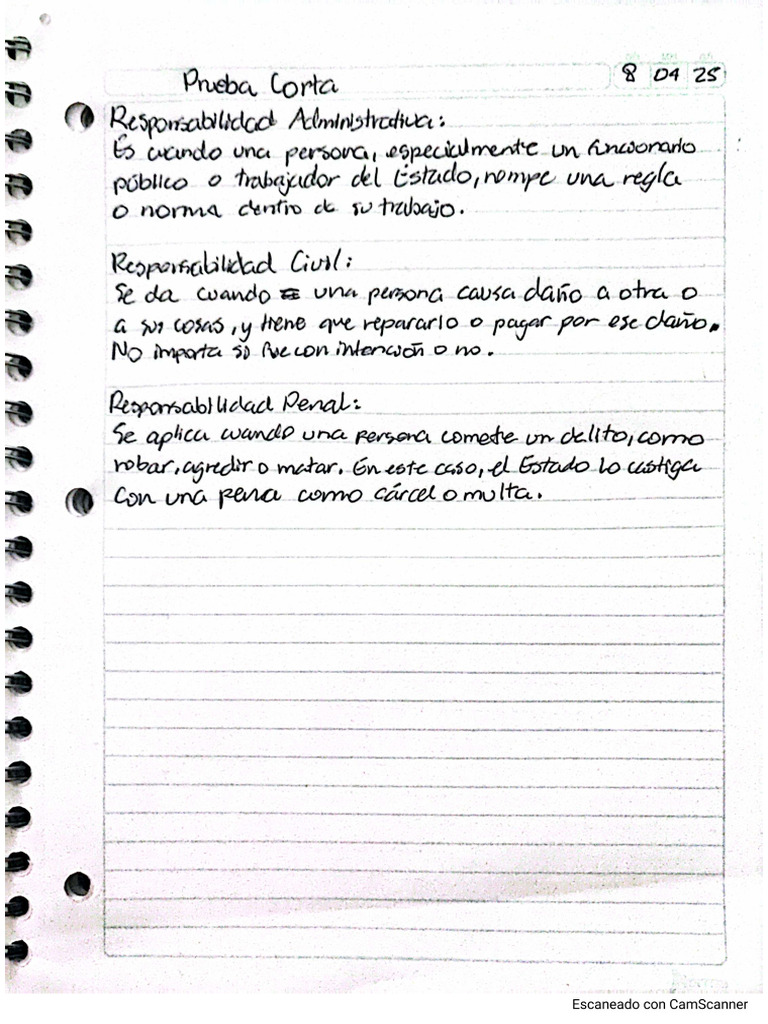 Prueba Corta
8 04 25
Responsabilidad Administrativa:
Es cuando una persona, especialmente un funcionario
público o trabajador del Estado, rompe una regla
o norma dentro de su trabajo.
Responsabilidad Civil:
Se da cuando una persona causa daño a otra o
a sus cosas, y tiene que repararlo o pagar por ese daño.
No importa si fue con intención o no.
Responsabilidad Penal:
Se aplica cuando una persona comete un delito, como
robar, agredir o matar. En este caso, el Estado lo castiga
con una pena como cárcel o multa.
Escaneado con CamScanner